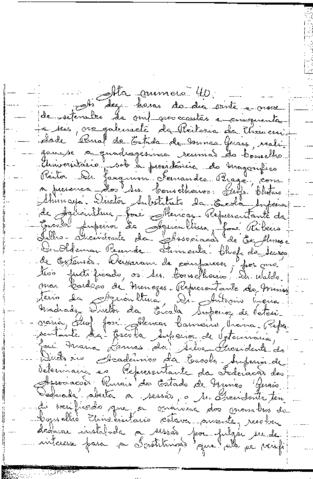 Ata numero 40.
As dez horas do dia vinte e nove
de setembro de mil novecentos e cincoenta
e seis, no gabinete da Reitoria da Universi
dade Rural do Estado de Minas Gerais, reali
zou-se a quadragesima reunião do Conselho
Universitário, sob a presidência do Magnifico
Reitor Dr. Joaquim Fernandes Braga, com
a presença dos srs. Conselheiros:
Diretor Substituto da Escola Superior
de Agricultura, José Alencar, Representante da
Escola Superior de Agricultura, José Ribeiro
Filho, Presidente da Associação de Ex-Alunos e
Chefe do Serviço
de Extensão. Deixaram de comparecer, por mo
tivo justificado, os srs. Conselheiros, Dr.
Cardoso de Menezes, Representante do Minis
terio da Agricultura, Dr. Antonio
Machado, Diretor da Escola Superior de Veteri
naria, José Carneiro Viana, Repre
sentante da Escola Superior de Veterinaria,
José Maria da Silva, Presidente do
Diretorio Academico da Escola Superior de
Veterinaria e o Representante da Federação das
Associações Rurais do Estado de Minas Gerais.
aberta a sessão, o sr. Presidente, ten
do verificado que a maioria dos membros do
Conselho Universitario estava presente,
declarou instalada a sessão por
interesse para a Instituição, que ela se